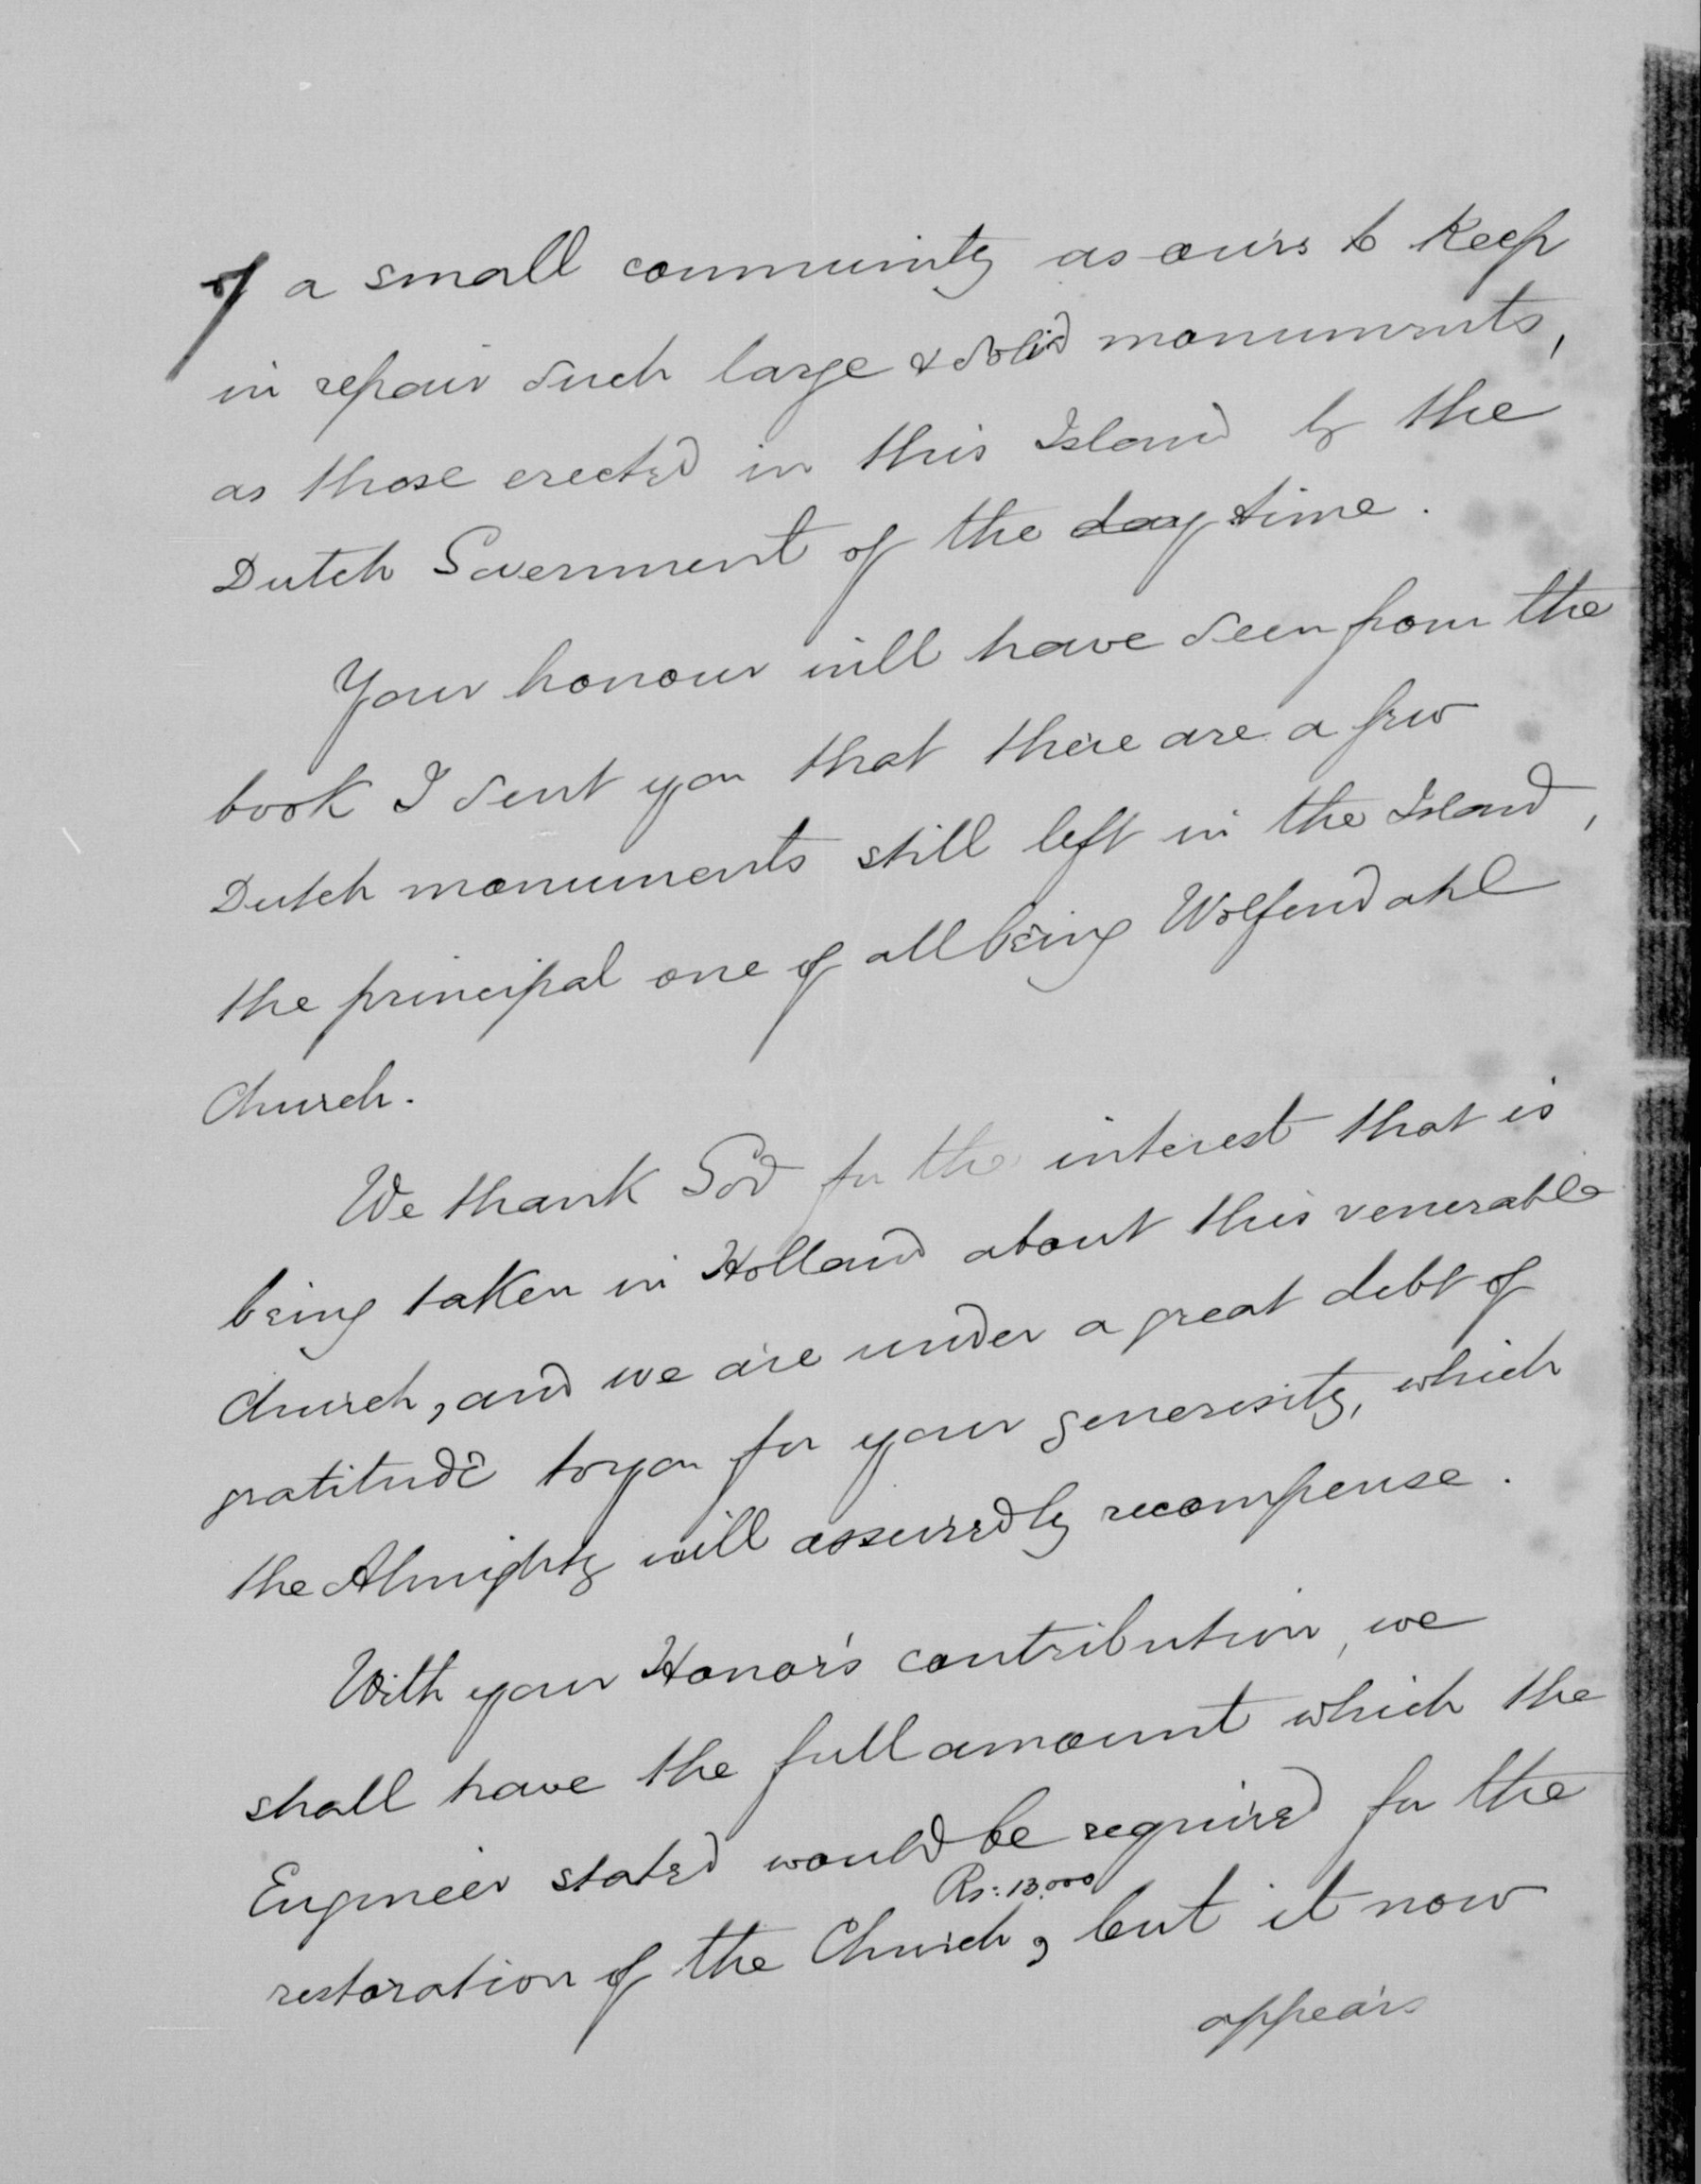 of a small community as ours to keep
in repair such large & solid monuments,
as those erected in this Island by the
Dutch Government of the day time.
Your honour will have seen from the
book I sent you that there are a few
Dutch monuments still left in the Island,
the principal one of all being Wolfendahl
Church.
We thank God for the interest that is
being taken in Holland about this venerable
Church, and we are under a great debt of
gratitude to you for your generosity, which
the Almighty will assuredly recompense.
With your Honor's contribution, we
shall have the full amount which the
Engineer stated would be required for the
Rs: 13.000
restoration of the Church, but it now
appears